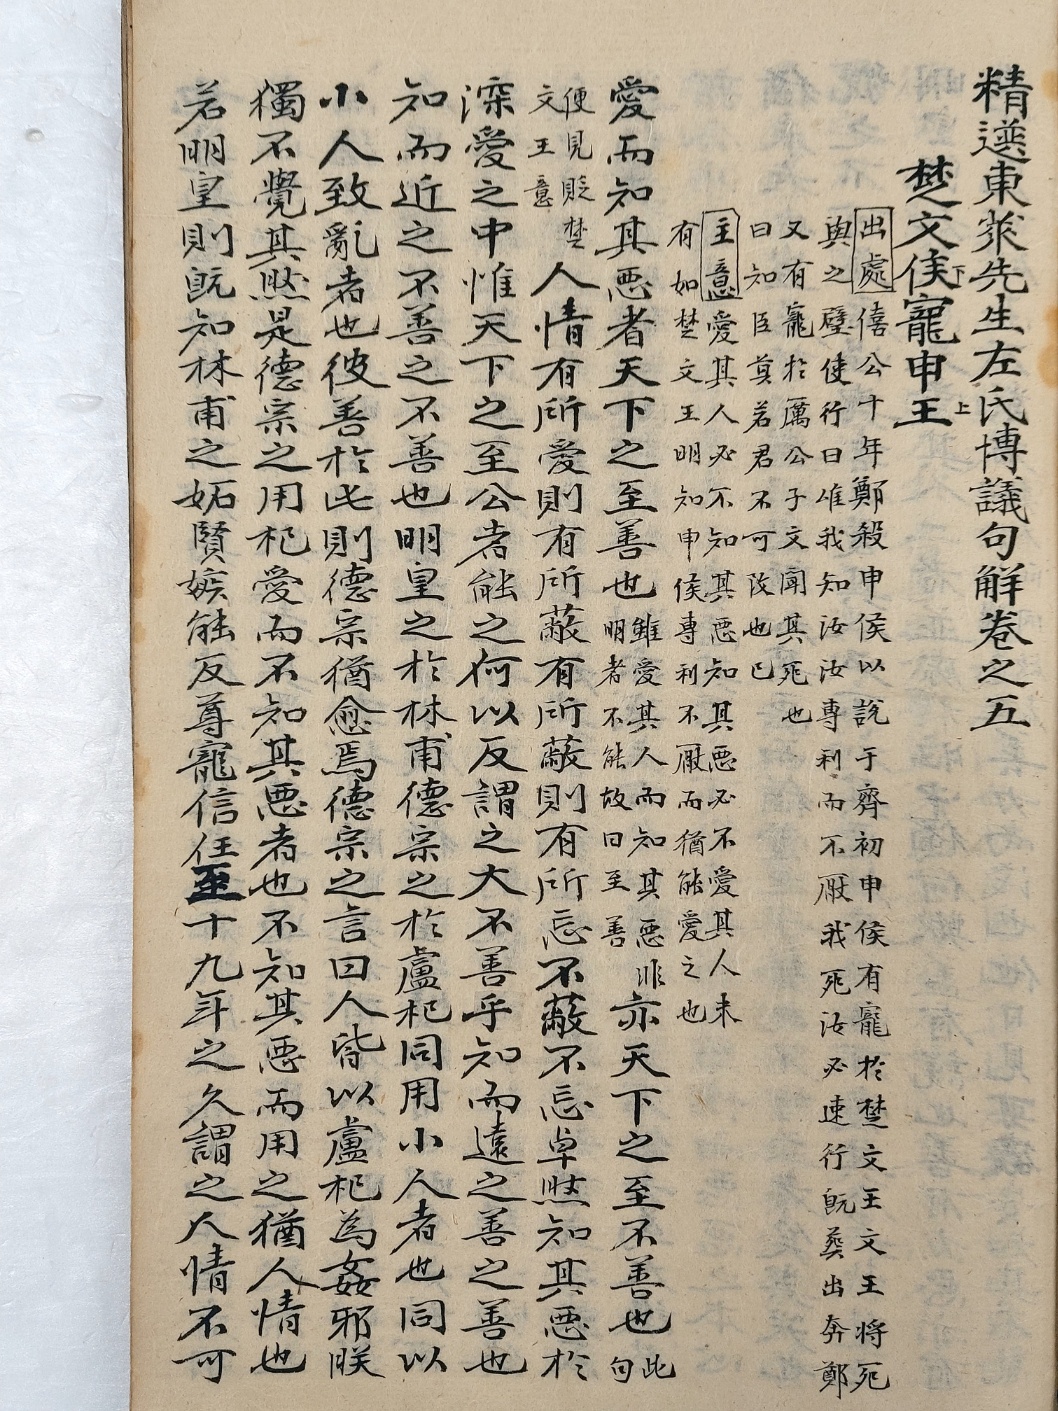 精選東萊先生左氏博議句解卷之五
楚文侯下寵申王上
出處僖公十年鄭殺申侯以說于齊初申侯有寵於楚文王文王將死
與之璧使行曰唯我知汝汝專利而不厭我死汝必速行既葬出奔鄭
又有寵於厲公子文聞其死也
曰知臣莫若君不可改也已
主意愛其人必不知其惡知其惡必不愛其人未
有如楚文王明知申侯專利不厭而猶能愛之也
愛而知其惡者天下之至善也雖愛其人而知其惡非明者不能故曰至善亦天下之至不善也此句
便見貶楚文王意人情有所愛則有所蔽有所蔽則有所忘不蔽不忘卓然知其惡於
深愛之中惟天下之至公者能之何以反謂之大不善乎知而遠之善之善也
知而近之不善之不善也明皇之於林甫德宗之於盧杞同用小人者也同以
小人致亂者也彼善於此則德宗猶愈焉德宗之言曰人皆以盧杞為姦邪朕
獨不覺其然是德宗之用杞愛而不知其惡者也不知其惡而用之猶人情也
若明皇則既知林甫之妬賢嫉能反尊寵信任至十九年之久謂之人情不可